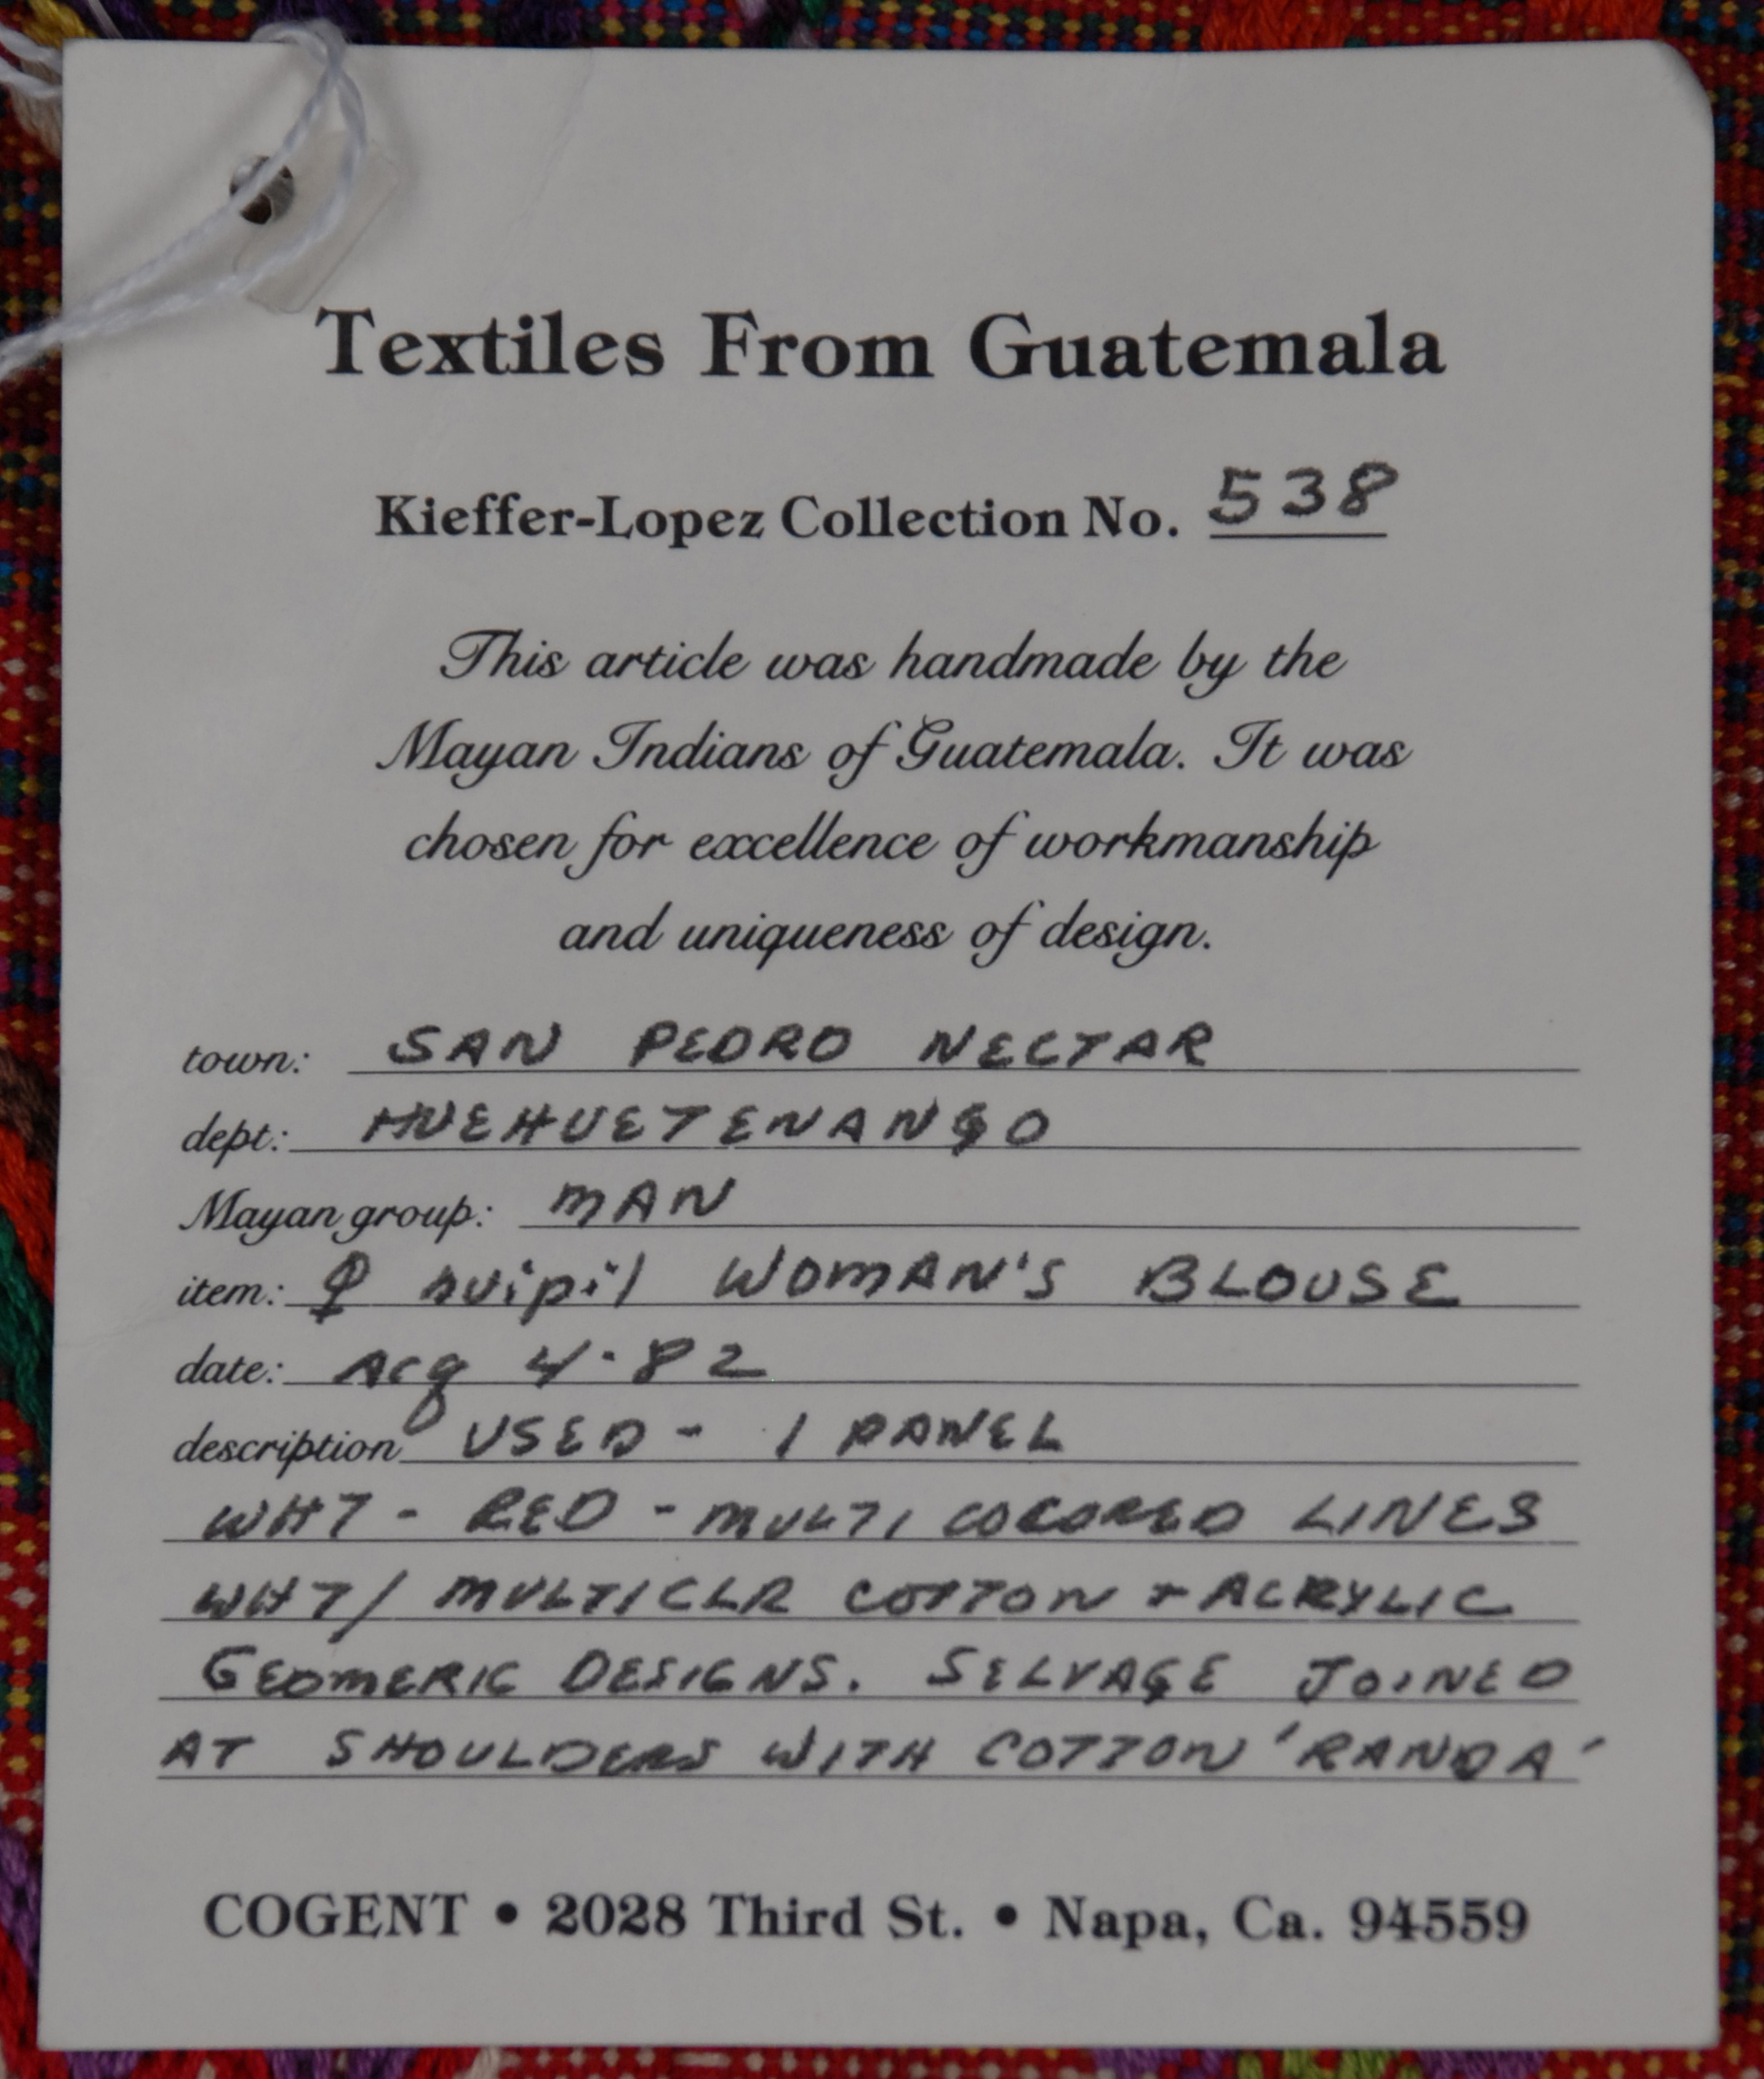 Textiles From Guatemala
Kieffer-Lopez Collection No. 538
This article was handmade by the
Mayan Indians of Guatemala. It was
chosen for excellence of workmanship
and uniqueness of design.
town: SAN PEDRO NECTAR
dept: HUEHUETENANGO
Mayan group: MAN
item: ♀ huipil WOMAN'S BLOUSE
date: Acq 4-82
description USED - 1 PANEL
WHT - RED - MULTI COLORED LINES
WHT/ MULTICLR COTTON + ACRYLIC
GEOMERIC DESIGNS. SELVAGE JOINED
AT SHOULDERS WITH COTTON 'RANDA'
COGENT • 2028 Third St. • Napa, Ca. 94559